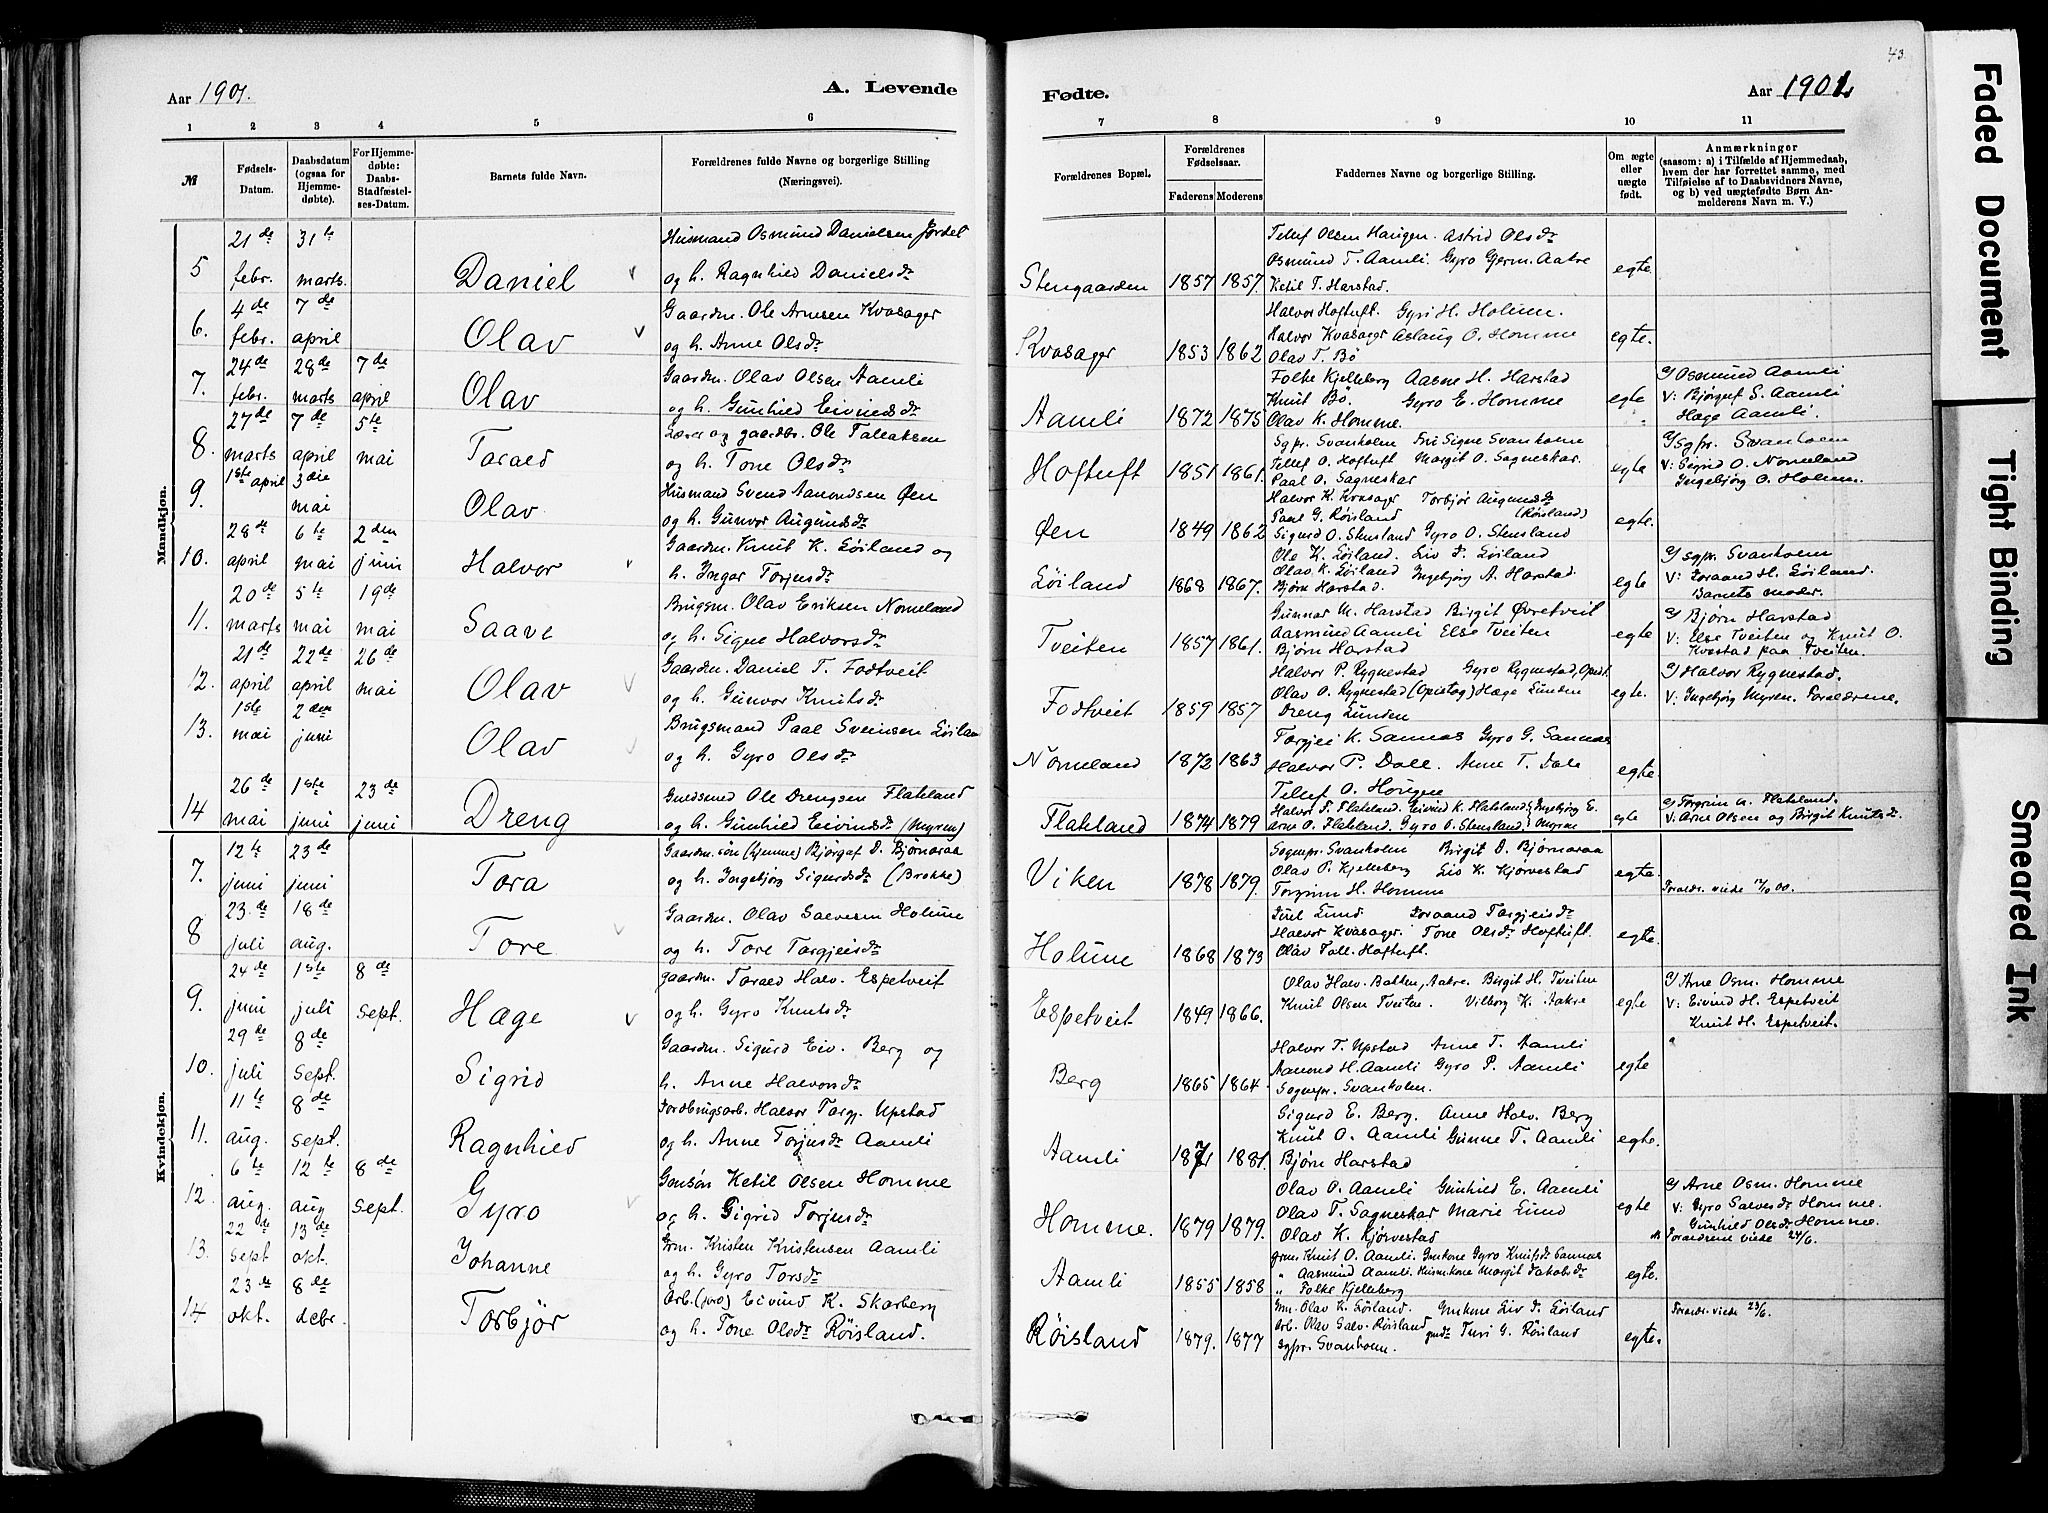 43.
Aar 1901.
A. Levende
Fødte.
Aar 1901.
1 2 3 4 5 6
7 8 9 10 11
№
Fødsels-Datum.
Daabsdatum (ogsaa for Hjemme-døbte).
For Hjemme-døbte: Daabs-Stadfæstel-ses-Datum.
Barnets fulde Navn.
Forældrenes fulde Navne og borgerlige Stilling (Næringsvei).
Forældrenes Bopæl.
Forældrenes Fødselsaar.
Faderens Moderens
Faddernes Navne og borgerlige Stilling.
Om ægte eller uægte født.
Anmærkninger
(saasom: a) i Tilfælde af Hjemmedaab,
hvem der har forrettet samme, med
Tilføielse af to Daabsvidners Navne,
og b) ved uægtefødte Børn An-
melderens Navn m. V.)
Mandkjøn.
5 21de febr. 31te marts. Daniel
Husmand Osmund Danielsen Jordet
og h. Ragnhild Danielsdr
Stengaarden 1857 1857.
Tellef Olsen Haugen. Astrid Olsdr
Osmund T. Aamli Gyro Germ. Aakre
Ketil T. Harstad.
egte.
6. 4de febr. 7de april Olav
Gaardm. Ole Arnesen Kvasager
og h. Anne Olsdr
Kvasager 1853 1862
Halvor Hoftuft. Gyri H. Holum.
Halvor Kvasager Aslaug O. Homme
Olav T. Bø
egte.
7. 24de febr. 28de marts 7de april Olav
Gaardm. Olav Olsen Aamli
og h. Gunhild Eivindsdr
Aamli 1872 1875
Folke Kjelleberg Aasne H. Harstad
Knut Bø. Gyro E. Homme
Olav K. Homme.
egte
Osmund Aamli
V: Bjørguf S. Aamli
Hæge Aamli.
8. 27de marts 7de april 5te mai Tarald
Lærer og gaardbr. Ole Tallaksen
og h. Tone Olsdr
Hoftuft 1851 1861.
Sgpr. Svanholm Fru Signe Svanholm
Tellef O. Hoftuft Margit O. Sagneskar.
Paal O. Sagneskar
egte
Sgpr. Svanholm
V: Sigrid O. Nomeland
Ingebjørg O. Holum.
9. 1ste april 3die mai Olav
Husmand Svend Aamondsen Øen
og h. Gunvor Augundsdr
Øen 1849 1862
Halvor K. Kvasager Torbjør Augundsdr
Paal G. Røisland (Røisland)
Sigurd O. Stensland Gyro O. Stensland
egte.
10. 28de april 6te mai 2den juni Halvor
Gaardm. Knut K. Løiland og
h. Ingar Torjusdr
Løiland 1868 1867.
Ole K. Løiland. Liv D. Løiland
Olav K. Løiland Ingebjørg A. Harstad.
Bjørn Harstad.
egte
sgpr. Svanholm
V: Joraand H. Løiland.
Barnets moder.
11. 20de marts 5te mai 19de mai Saave
Brugsm. Olav Eriksen Nomeland
og h. Signe Halvorsdr
Tveiten 1857 1861.
Gunnar M. Harstad Birgit Øvretveit
Aasmund Aamli Else Tveiten
Bjørn Harstad
egte
Bjørn Harstad
V: Else Tveiten og Knut O.
Kvastad paa Tveiten.
12. 21de april 22de april 26de mai Olav
Gaardm. Daniel T. Fodtveit
og h. Gunvor Knutsdr
Fodtveit 1859 1857
Halvor P. Rygnestad Gyro Rygnestad, Opist.
Olav O. Rygnestad (Opistog) Hæge Lunden
Dreng Lunden
egte.
Halvor Rygnestad.
V: Ingebjørg Myren. Forældrene.
13. 1ste mai 2den juni Olav
Brugsmand Paal Sveinsen Løiland
og h. Gyro Olsdr
Nomeland 1872 1863
Torgjei K. Sannæs Gyro G. Sannæs
Halvor P. Dale. Anne T. Dale
Tellef O. Haugen
egte.
14 26de mai 1ste juni 23de juni Dreng
Guldsmed Ole Drengsen Flateland
og h. Gunhild Eivindsdr (Myren)
Flateland 1874 1879
Halvor D. Flateland. Eivind K. Flateland Ingebjørg E.
Arne O. Flateland. Gyro O. Stensland. Myren
egte
Torgrim A. Flateland.
V: Arne Olsen og Birgit Knutsdr.
Kvindekjøn.
7. 12te juni 23de juni Tora
Gaardm.søn (hjemme) Bjørguf D. Bjørnaraa
og h. Ingebjørg Sigurdsdr (Brokke)
Viken 1878 1879.
Sognepr. Svanholm Birgit D. Bjørnaraa
Olav P. Kjelleberg Liv K. Kjørvestad
Torgrim H. Homme
egte.
Forældr. viede 17/10 00.
8 23de juli 18de aug. Tore
Gaardm. Olav Salvesen Holum
og h. Tore Targjeisdr
Holum 1868 1873
Juel Lund Joraand Targjeisdr
Halvor Kvasager. Tone Olsdr Hoftuft.
Olav Tall. Hoftuft.
egte.
9. 24de juni 1ste juli 8de sept. Hæge
gaardm. Tarald Halv. Espetveit
og h. Gyro Knutsdr
Espetveit 1849 1866.
Olav Halv. Bakken, Aakre. Birgit H. Tveiten
Knut Olsen Tveiten. Vilborg K. Aakre
egte
Arne Osm. Homme
V: Eivind H. Espetveit
Knut H. Espetveit.
10. 29de juli 8de sept. Sigrid
Gaardm. Sigurd Eiv. Berg og
h. Anne Halvorsdr
Berg 1865 1864.
Halvor T. Upstad Anne T. Aamli
Aanond H. Aamli Gyro P. Aamli
Sognepr. Svanholm.
egte
11. 11te aug. 8de sept. Ragnhild
Jordbrugsarb. Halvor Targj. Upstad
og h. Anne Torjusdr Aamli
Aamli 1881.
Sigurd E. Berg. Anne Halv. Berg
Knut O. Aamli Gunne T. Aamli
Bjørn Harstad
egte.
12. 6te aug. 12te aug 8de sept. Gyro
Gmsøn Ketil Olsen Homme
og h. Sigrid Torjusdr
Homme. 1879 1879.
Olav O. Aamli Gunhild E. Aamli
Olav T. Sagneskar Marie Lund
Olav K. Kjørvestad
egte
Arne Osm. Homme
V: Gyro Salvesdr Homme.
Gunhild Olsdr Homme.
Forældrene viede 24/6.
13. 22de sept 13de okt. Johanne
Grm. Kristen Kristensen Aamli
og h. Gyro Torsdr
Aamli 1855 1858
grm. Knut O. Aamli. Gmkone Gyro Knutsdr Sannæs
" Aasmund Aamli. Husm.kone Margit Jakobsdr
" Folke Kjelleberg
egte.
14 23de okt. 8de decbr. Torbjør
Arb. (jord) Eivind K. Skarberg
og h. Tone Olsdr Røisland.
Røisland 1879. 1877
Gm. Olav K. Løiland. Gmkone Liv D. Løiland
Arb. Olav Salv. Røisland
Turi G. Røisland
sgpr. Svanholm.
egte.
Forældr. viede 23/6.
Faded Document
Tight Binding
Smeared Ink